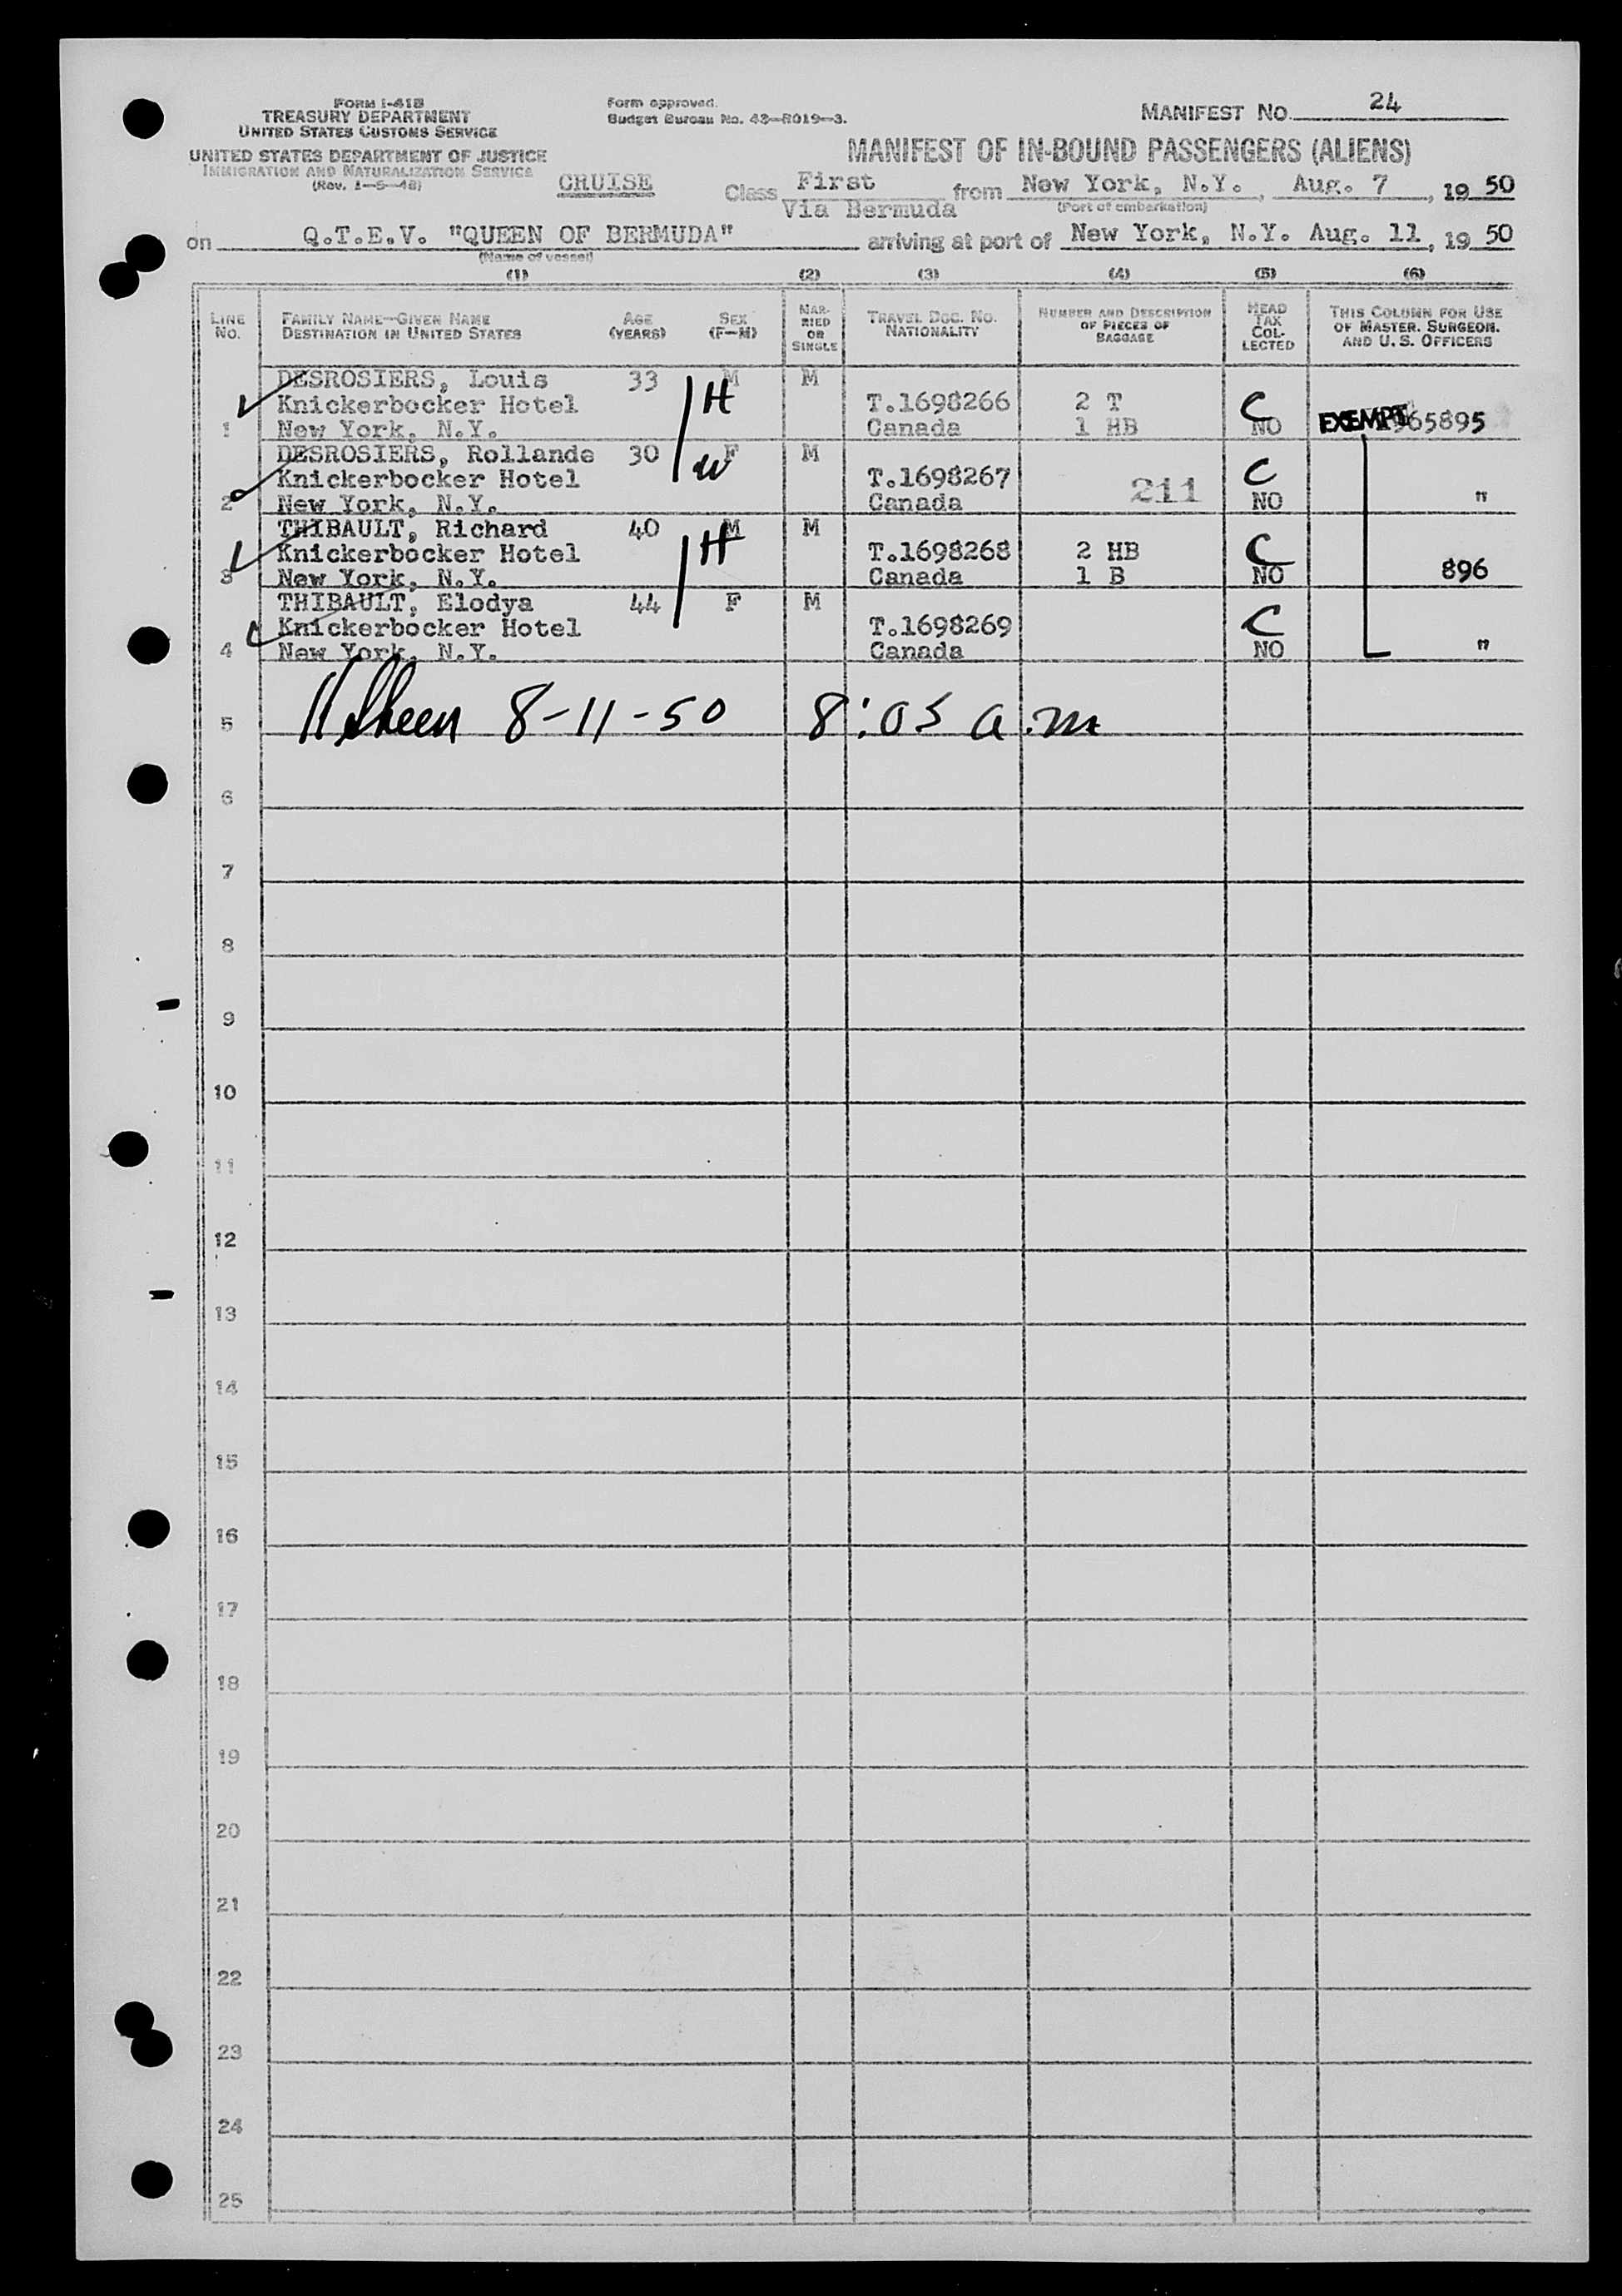 FORM I-418
TREASURY DEPARTMENT
UNITED STATES CUSTOMS SERVICE
UNITED STATES DEPARTMENT OF JUSTICE
IMMIGRATION AND NATURALIZATION SERVICE
(Rev. 1-5-48)
Form approved.
Budget Bureau No. 43-R019-3.
MANIFEST NO. 24
MANIFEST OF IN-BOUND PASSENGERS (ALIENS)
CRUISE Class First from New York, N.Y., Aug. 7, 19 50
Via Bermuda (Port of embarkation)
on Q.T.E.V. "QUEEN OF BERMUDA" arriving at port of New York, N.Y. Aug. 11, 19 50
(Name of vessel)
(1) (2) (3) (4) (5) (6)
LINE NO. FAMILY NAME—GIVEN NAME DESTINATION IN UNITED STATES AGE (YEARS) SEX (F—M) MARRIED OR SINGLE TRAVEL DOC. NO. NATIONALITY NUMBER AND DESCRIPTION OF PIECES OF BAGGAGE HEAD TAX COLLECTED THIS COLUMN FOR USE OF MASTER, SURGEON, AND U. S. OFFICERS
DESROSIERS, Louis 33 M M
Knickerbocker Hotel H T.1698266 2 T C
1 New York, N.Y. Canada 1 HB NO EXEMPT 65895
DESROSIERS, Rollande 30 F M
Knickerbocker Hotel W T.1698267 C
2 New York, N.Y. Canada 211 NO "
THIBAULT, Richard 40 M M
Knickerbocker Hotel H T.1698268 2 HB C
3 New York, N.Y. Canada 1 B NO 896
THIBAULT, Elodya 44 F M
Knickerbocker Hotel T.1698269 C
4 New York, N.Y. Canada NO "
5 8-11-50 8:05 a.m
6
7
8
9
10
11
12
13
14
15
16
17
18
19
20
21
22
23
24
25